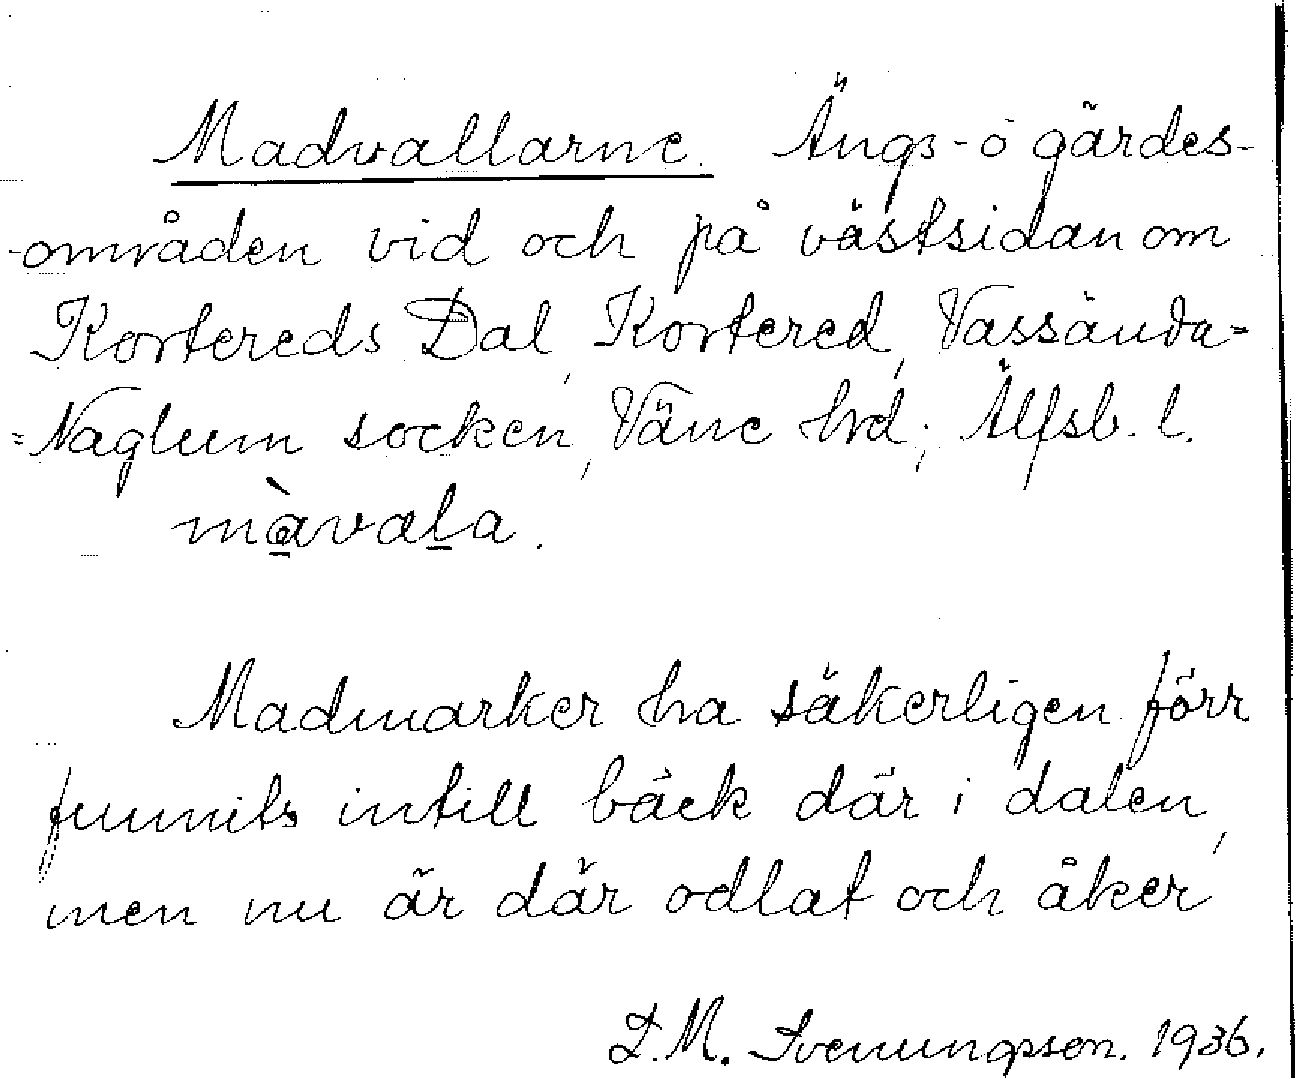 Madvallarne. Ängs- o gärdes-
-områden vid och på västsidan om
Kortereds Dal, Kortered, Vassända=
=Naglum socken, Väne hrd; Älfsb. l.
màvala.
Madmarker ha säkerligen förr
funnits intill bäck där i dalen,
men nu är där odlat och åker
L.M. Svenungsson. 1936.